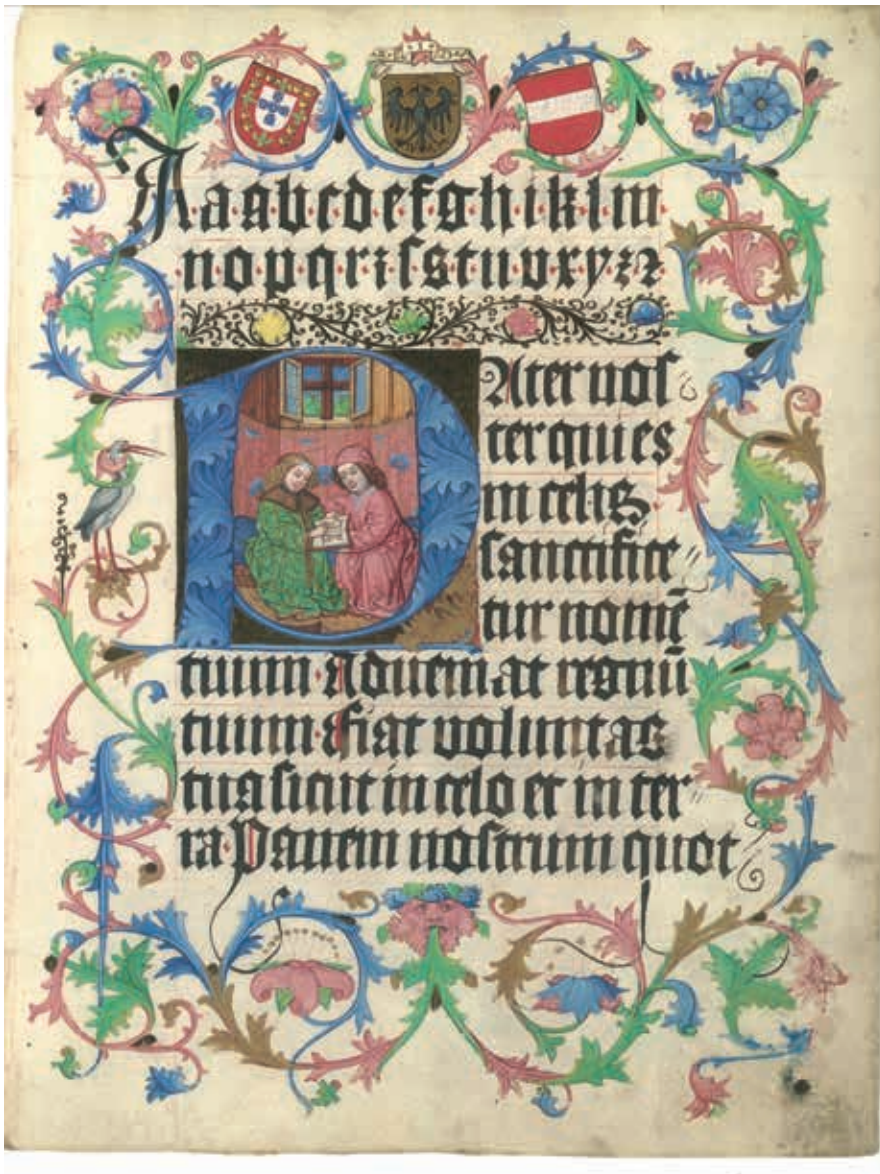 A a a b c d e f g h i k l m
n o p q r ꝛ ſ s t u v x y z
PAter noſ
ter qui es
in celis
ſanctifice
tur nomē
tuum · Adueniat regnū
tuum · fiat voluntas
tua ſicut in celo et in ter
ra · Panem noſtrum quot